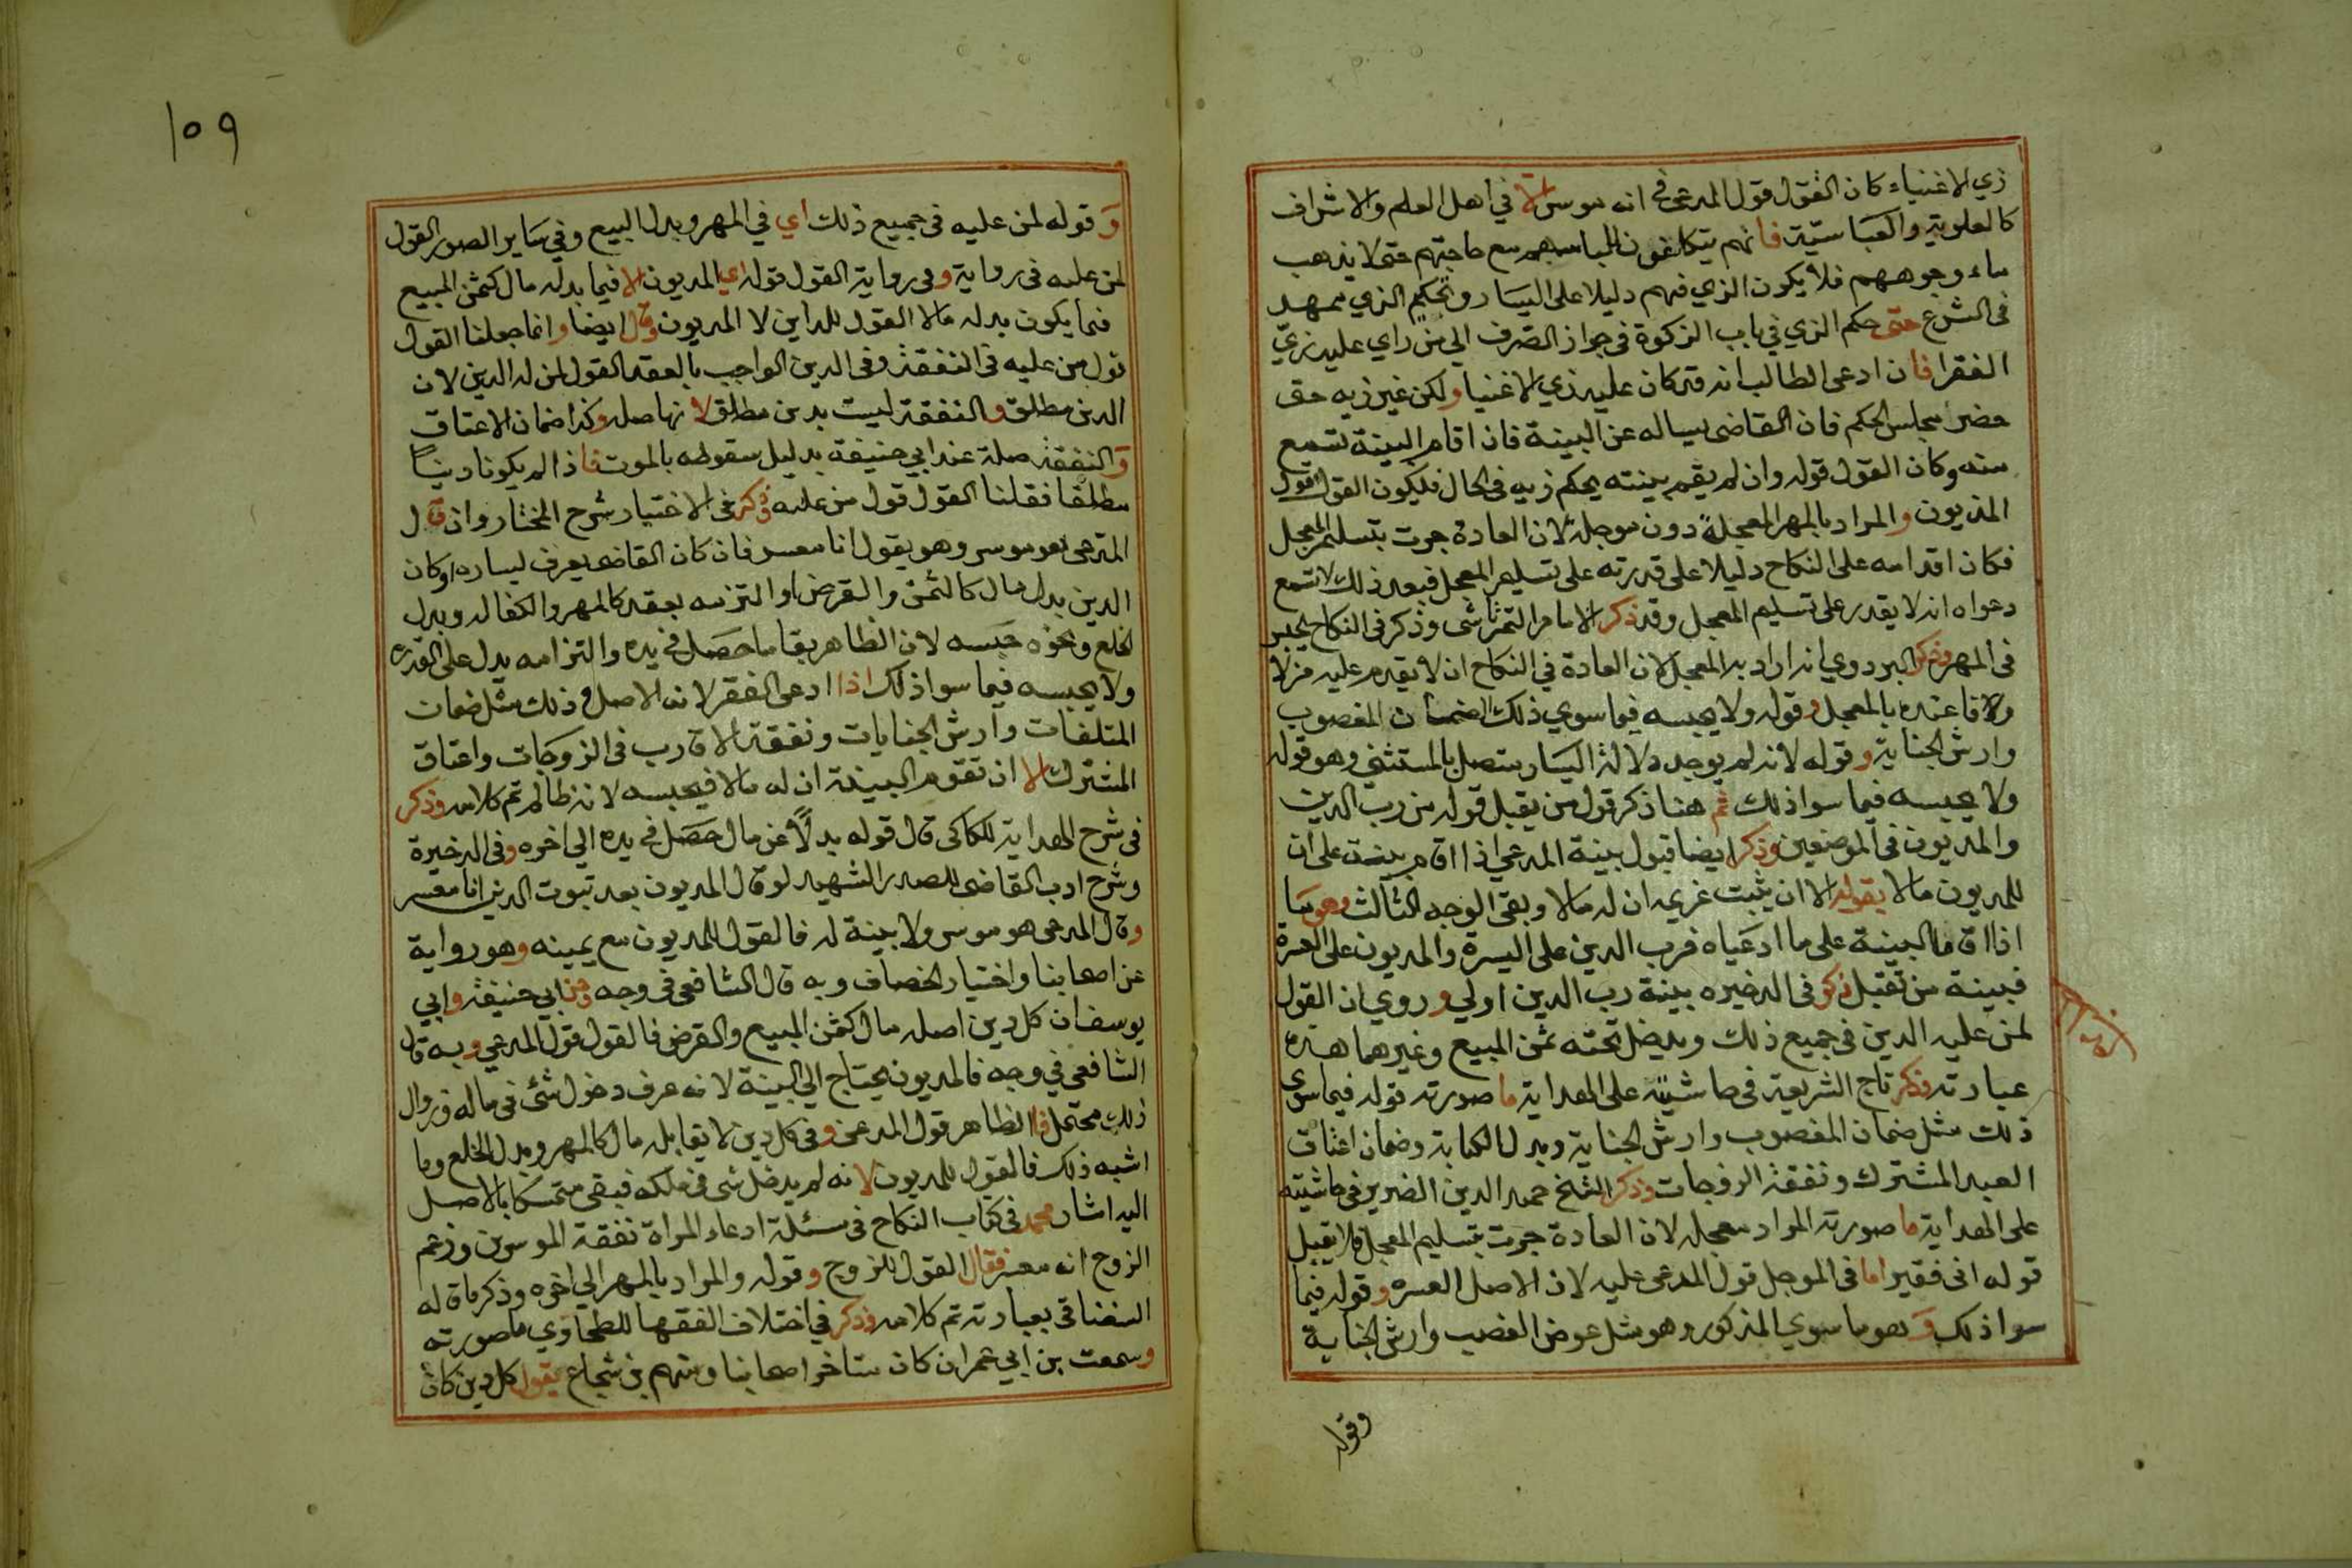 زي الاغنياء كان القول قول المدعي في انه موسر الا في اهل العلم والاشراف
كالعلوية والعباسية فانهم يتكلفون للباسهم مع حاجتهم حتى لا يذهب
ماء وجوههم فلا يكون الزي فيهم دليلا على اليسار وتحكيم الزي ممهد
في الشرع حتى حكم الزي في باب الزكوة في جواز الصرف الى من راي عليه زي
الفقرا فان ادعى الطالب انه قد كان عليه زي الاغنيا ولكن غير زيه حتى
حضر مجلس الحكم فان القاضي يساله عن البينة فان اقام البينة تسمع
منه وكان القول قوله وان لم يقم بينته يحكم زيه في الحال فيكون القول قول
المديون والمراد بالمهر المعجلة دون موجله لان العادة جرت بتسليم المعجل
فكان اقدامه على النكاح دليلا على قدرته على تسليم المعجل فبعد ذلك لا تسمع
دعواه انه لا يقدر على تسليم المعجل وقد ذكر الامام التمرتاشي وذكر في النكاح يحبس
في المهر وذكر البزدوي انه اراد به المعجل لان العادة في النكاح ان لا يقدم عليه من لا
ولافا عنده بالمعجل وقوله ولا يحبسه فيما سوي ذلك ضمان المغصوب
وارش الجناية وقوله لانه لم يوجد دلالة اليسار متصل بالمستثنى وهو قوله
ولا يحبسه فيما سوا ذلك ثم هنا ذكر قول من يقبل قوله من رب الدين
والمديون في الموضعين وذكر ايضا قبول بينة المدعي اذا اقام بينة على ان
للمديون مالا بقوله الا ان يثبت غريمه ان له مالا وبقي الوجه الثالث وهو ما
اذا اقاما البينة على ما ادعياه فرب الدين على اليسرة والمديون على العسرة
فبينة من تقبل ذكر في الدخيره بينة رب الدين اولي وروي ان القول
لمن عليه الدين في جميع ذلك ويدخل تحته ثمن المبيع وغيرهما هذه
عبارته وذكر تاج الشريعة في حاشيته على الهداية ما صورته قوله فيما سوي
ذلك مثل ضمان المغصوب وارش الجناية وبدل الكتابة وضمان اعتاق
العبد المشترك ونفقة الزوجات وذكر الشيخ حميد الدين الضرير في حاشيته
على الهداية ما صورته المراد معجله لان العادة جرت بتسليم المعجل فلا يقبل
قوله اني فقير اما في الموجل قول المدعى عليه لان الاصل العسره وقوله فيما
سوا ذلك وهو ما سوي المذكور وهو مثل عوض الغصب وارش الجناية
وقوله
١٥٩
وقوله لمن عليه في جميع ذلك اي في المهر وبدل البيع وفي ساير الصور القول
لمن عليه في رواية وفي رواية القول قوله اي المديون الا فيما بدله مال كثمن المبيع
فيما يكون بدله مالا القول للداين لا المديون وقال ايضا وانما جعلنا القول
قول من عليه في النفقة وفي الدين الواجب بالعقد القول لمن له الدين لان
الدين مطلق والنفقة ليست بدين مطلق لانها صله وكذا ضمان الاعتاق
والنفقة صلة عند ابي حنيفة بدليل سقوطه بالموت فاذا لم يكونا دينا
مطلقا فقلنا القول قول من عليه وذكر في الاختيار شرح المختار وان قال
المدعي هو موسر وهو يقول انا معسر فان كان القاضي يعرف يساره او كان
الدين بدل مال كالثمن والقرض او التزمه بعقد كالمهر والكفاله وبدل
الخلع ونحوه حبسه لان الظاهر بقا ما حصل في يده والتزامه يدل على القدره
ولا يحبسه فيما سوا ذلك اذا ادعى الفقر لانه الاصل وذلك مثل ضمان
المتلفات وارش الجنايات ونفقة الاقارب في الزوجات واعتاق
المشترك الا ان تقوم البينة ان له مالا فيحبسه لانه ظالم تم كلامه وذكر
في شرح الهداية للكاكي قال قوله بدلا عن مال حصل في يده الي اخره وفي الدخيرة
وشرح ادب القاضي للصدر الشهيد لو قال المديون بعد ثبوت الدين انا معسر
وقال المدعي هو موسر ولا بينة له فالقول للمديون مع يمينه وهو رواية
عن اصحابنا واختيار الخصاف وبه قال الشافعي في وجه وعن ابي حنيفة وابي
يوسف ان كل دين اصله مال كثمن المبيع والقرض فالقول قول المدعي وبه قال
الشافعي في وجه فالمديون يحتاج الي البينة لانه عرف دخول شئ في ماله وزوال
ذلك محتمل فالظاهر قول المدعي وفي كل دين لا يقابله مال كالمهر وبدل الخلع وما
اشبه ذلك فالقول للمديون لانه لم يدخل شي في ملكه فبقي متمسكا بالاصل
اليه اشار محمد في كتاب النكاح في مسئلة ادعاء المراة نفقة الموسرين وزعم
الزوج انه معسر فقال القول للزوج وقوله والمراد بالمهر الي اخره وذكر ما قاله
السغناقي بعبارته تم كلامه وذكر في اختلاف الفقها للطحاوي ما صورته
وسمعت بن ابي عمران كان متاخر اصحابنا ومنهم بن شجاع يقول كل دين كان